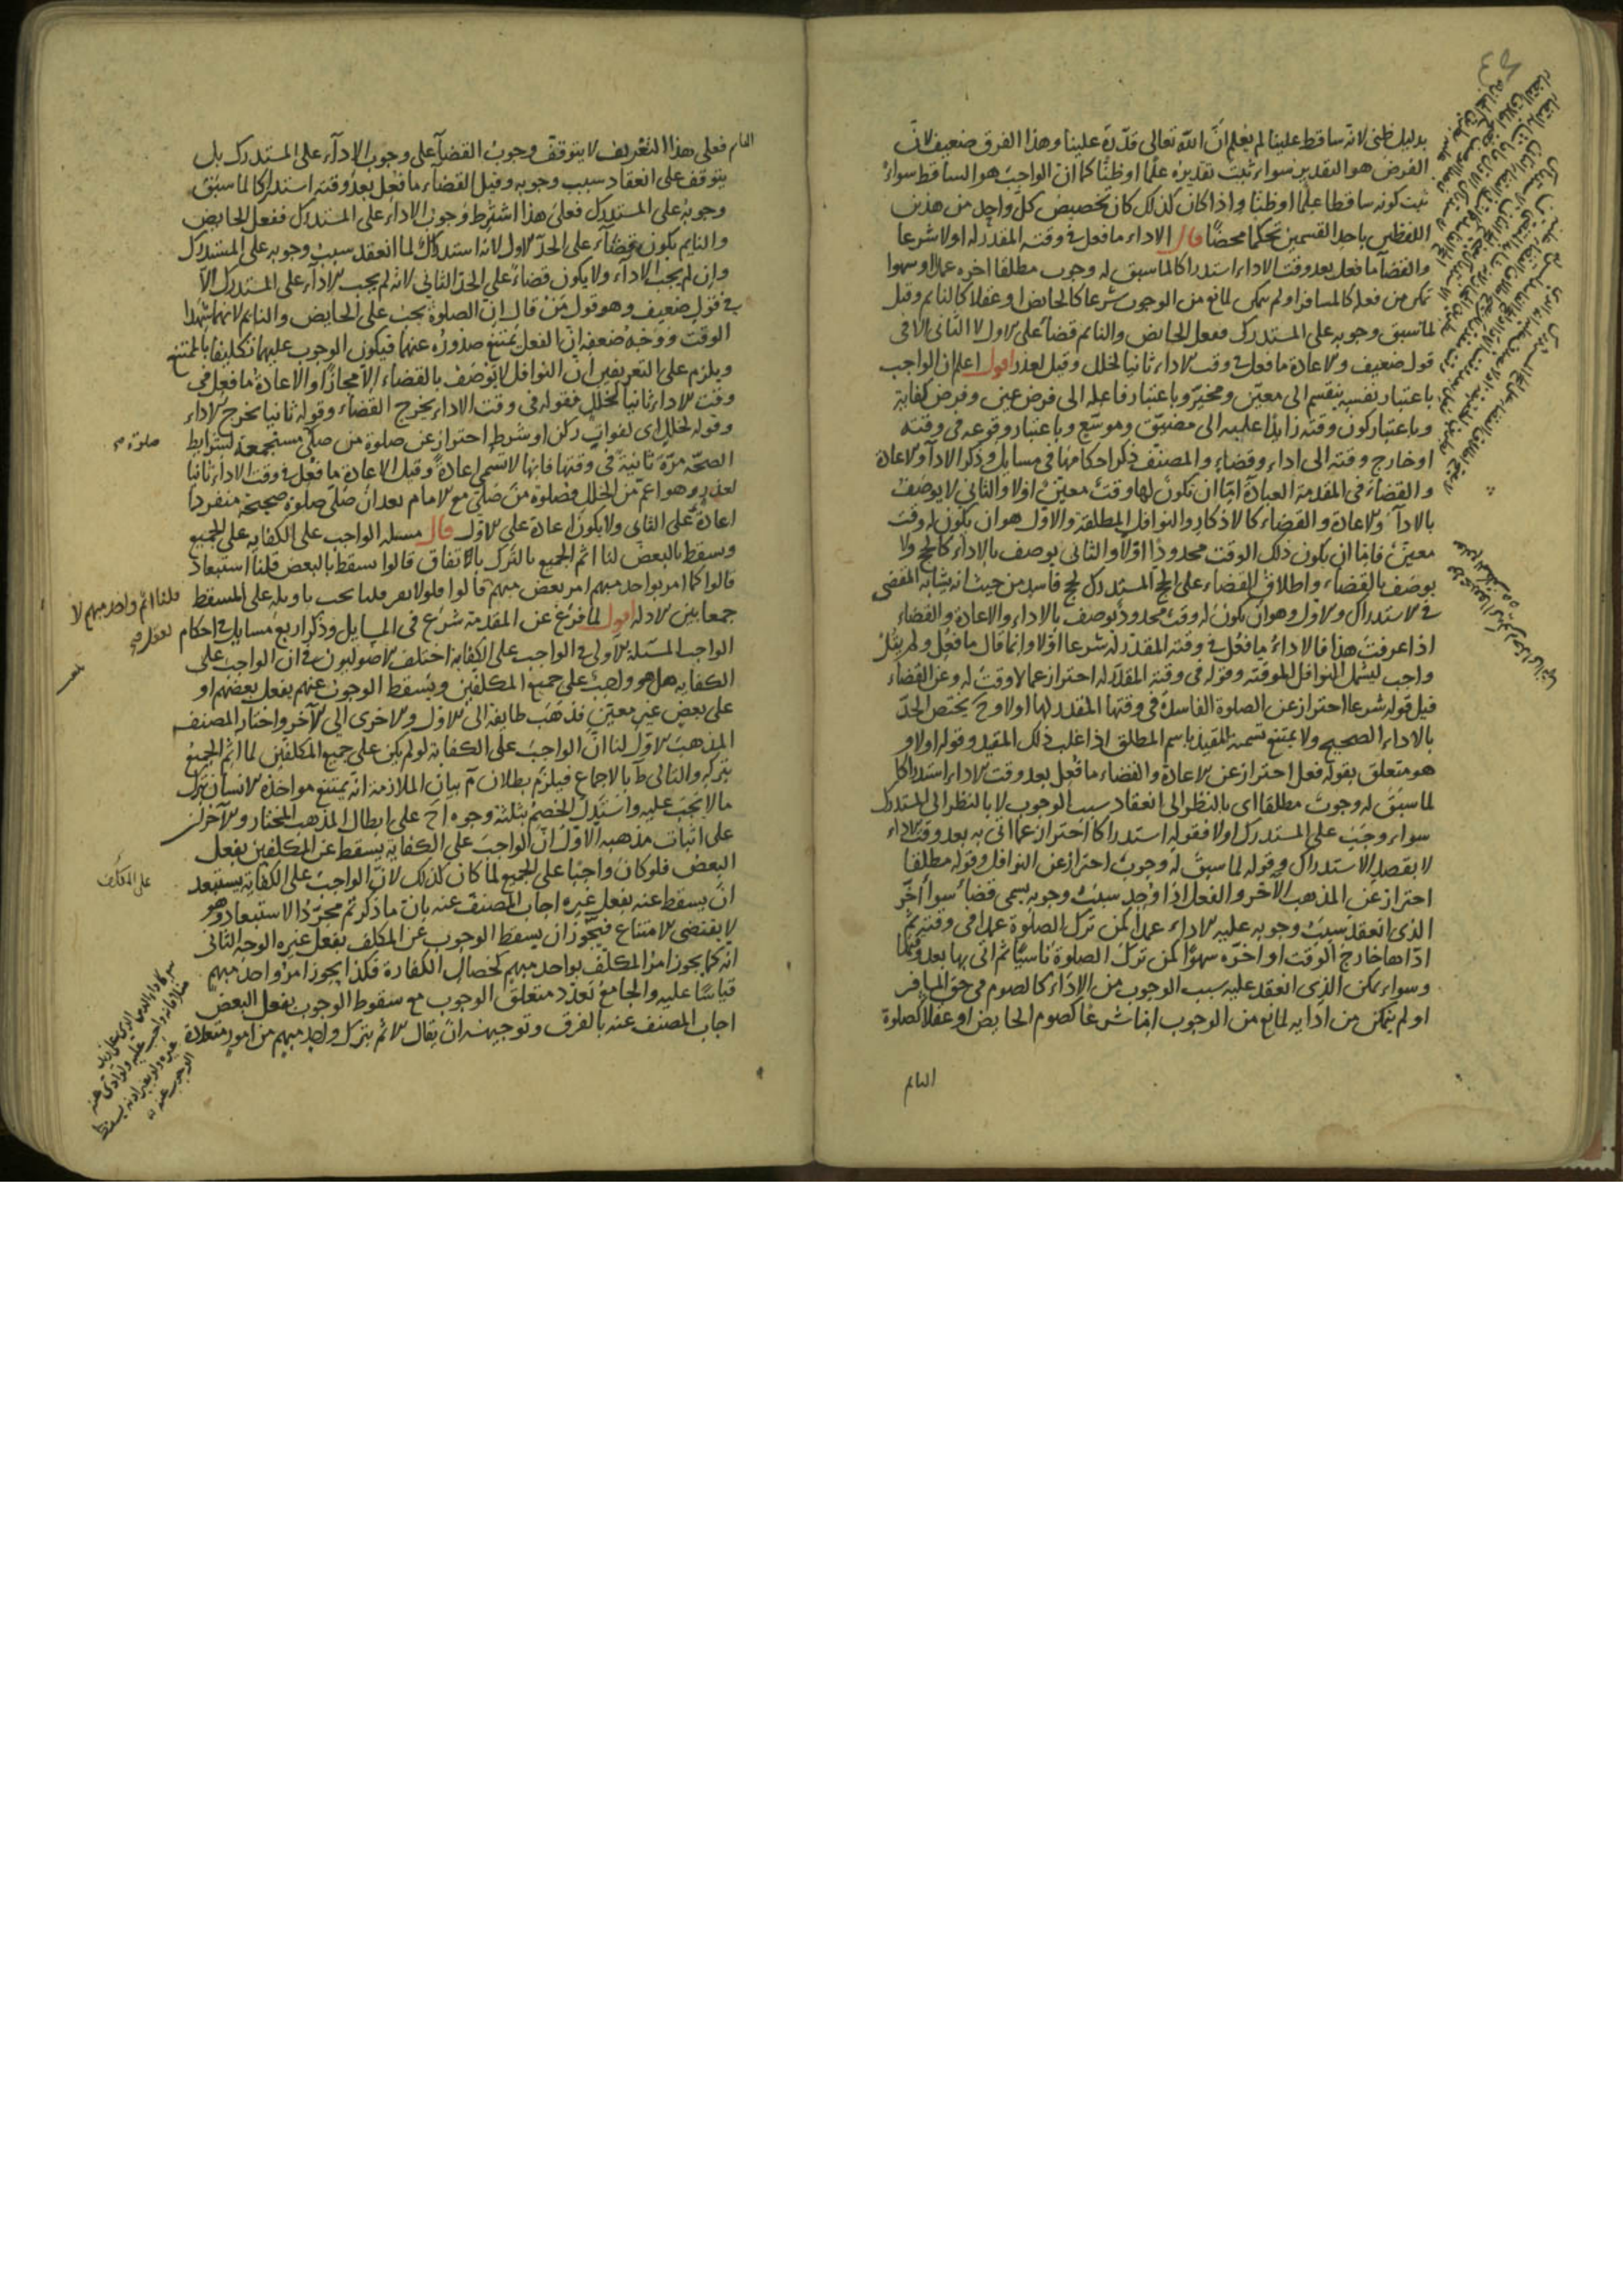 بدليل ظنى لانه ساقط علينا لم يعلم ان الله تعالى قدره علينا وهذا الفرق ضعيف لان
الفرض هو التقدير سواء ثبت تقديره علما او ظنا كما ان الواجب هو الساقط سواء
ثبت كونه ساقطا علما او ظنا واذا كان كذلك كان تخصيص كل واحد من هذين
اللفظين باحد القسمين تحكما محضا قال الاداء ما فعل فى وقته المقدر له اولا شرعا
والقضآ ما فعل بعد وقت الاداء استدراكا لما سبق له وجوب مطلقا اخره عمدا او سهوا
تمكن من فعله كالمسافر او لم يمكن لمانع من الوجوب شرعا كالحائض او عقلا كالنايم وقيل
لما سبق وجوبه على المستدرك ففعل الحايض والنايم قضآ على الاول لا الثانى الا فى
قول ضعيف والاعادة ما فعل فى وقت الاداء ثانيا لخلل وقيل لعذر اقول اعلم ان الواجب
باعتبار نفسه ينقسم الى معين ومخير وباعتبار فاعله الى فرض عين وفرض كفاية
وباعتبار كون وقته زايدا عليه الى مضيق وموسع وباعتبار وقوعه فى وقته
او خارج وقته الى اداء وقضاء والمصنف ذكر احكامها فى مسايل وذكر الادآ والاعادة
والقضاء فى المقدمة العبادة اما ان تكون لها وقت معين اولا والثانى لا يوصف
بالادآ والاعادة والقضاء كالاذكار والنوافل المطلقة والاول هو ان يكون له وقت
معين فاما ان يكون ذلك الوقت محدودا اولا والثانى يوصف بالاداء كالحج ولا
يوصف بالقضاء واطلاق القضاء على الحج المستدرك لحج فاسد من حيث انه يشابه المقضى
فى الاستدراك والاول وهو ان يكون له وقت محدود يوصف بالاداء والاعادة والقضاء
اذا عرفت هذا فالاداء ما فعل فى وقته المقدر له شرعا اولا وانما قال ما فعل ولم يقل
واجب ليشمل النوافل الموقتة وقوله فى وقته المقدر له احتراز عما لا وقت له وعن القضاء
قيل قوله شرعا احتراز عن الصلوة الفاسدة فى وقتها المقدر لها اولا وح يختص الحد
بالاداء الصحيح ولا يمتنع تسمية المقيد باسم المطلق اذا غلب ذلك المقيد وقوله اولا و
هو متعلق بقوله فعل احتراز عن الاعادة والقضاء ما فعل بعد وقت الاداء استدراكا
لما سبق له وجوب مطلقا اى بالنظر الى انعقاد سبب الوجوب لا بالنظر الى المستدرك
سواء وجب على المستدرك اولا فقوله استدراكا احتراز عما اتى به بعد وقت الاداء
لا بقصد الاستدراك وقوله لما سبق له وجوب احتراز عن النوافل وقوله مطلقا
احتراز عن المذهب الآخر والفعل اذا وجد سبب وجوبه يسمى قضاء سواء أخر
الذى انعقد سبب وجوبه عليه الاداء عمدا كمن ترك الصلوة عمدا فى وقته ثم
اداها خارج الوقت او اخره سهوا كمن ترك الصلوة ناسيا ثم اتى بها بعد وقتها
وسواء تمكن الذى انعقد عليه سبب الوجوب من الاداء كالصوم فى حق المسافر
او لم يتمكن من ادايه لمانع من الوجوب اما شرعا كصوم الحايض او عقلا كصلوة
النايم
النايم فعلى هذا التعريف لا يتوقف وجوب القضآ على وجوب الادآء على المستدرك بل
يتوقف على انعقاد سبب وجوبه وقيل القضاء ما فعل بعد وقته استدراكا لما سبق
وجوبه على المستدرك فعلى هذا اشترط وجوب الاداء على المستدرك ففعل الحايض
والنايم يكون قضآء على الحد الاول لانه استدراك لما انعقد سبب وجوبه على المستدرك
وان لم يجب الادآء ولا يكون قضاء على الحد الثانى لانه لم يجب الادآء على المستدرك الا
فى قول ضعيف وهو قول من قال ان الصلوة يجب على الحايض والنايم لانهما شهدا
الوقت ووجه ضعفه ان الفعل يمتنع صدوره عنهما فيكون الوجوب عليهما تكليفا بالممتنع
ويلزم على التعريفين ان النوافل لا توصف بالقضاء الا مجازا والاعادة ما فعل فى
وقت الاداء ثانيا لخلل فقوله فى وقت الاداء يخرج القضاء وقوله ثانيا يخرج الاداء
وقوله لخلل اى لفوات ركن او شرط احتراز عن صلوة من صلى مستجمعة لشرايط
صلوة صح
الصحة مرة ثانية فى وقتها فانها لا تسمى اعادة وقيل الاعادة ما فعل فى وقت الاداء ثانيا
لعذر وهو اعم من الخلل فصلوة من صلى مع الامام بعد ان صلى صلوة صحيحة منفردا
اعادة على الثانى ولا يكون اعادة على الاول قال مسئلة الواجب على الكفاية على الجميع
ويسقط بالبعض لنا اثم الجميع بالترك بالاتفاق قالوا يسقط بالبعض قلنا استبعاد
قالوا كما امر بواحد مبهم امر بعض مبهم قالوا فلولا نفر قلنا يجب تاويله على المسقط
قلنا اثم واحد مبهم لا
يعقل صح
جمعا بين الادلة اقول لما فرغ عن المقدمة شرع فى المسايل وذكر اربع مسايل فى احكام
الواجب المسئلة الاولى فى الواجب على الكفاية اختلف الاصوليون فى ان الواجب على
الكفاية هل هو واجب على جميع المكلفين ويسقط الوجوب عنهم بفعل بعضهم او
على بعض غير معين فذهب طايفة الى الاول والاخرى الى الآخر واختار المصنف
المذهب الاول لنا ان الواجب على الكفاية لو لم يكن على جميع المكلفين لما اثم الجميع
بتركه والتالى ط بالاجماع فيلزم بطلان م بيان الملازمة انه يمتنع مواخذة الانسان بترك
ما لا يجب عليه واستدل الخصم بثلثة وجوه اح على ابطال المذهب المختار والآخران
على اثبات مذهبه الاول ان الواجب على الكفاية يسقط عن المكلفين بفعل
البعض فلو كان واجبا على الجميع لما كان كذلك لان الواجب على الكفاية يستبعد
على المكلف
ان يسقط عنه بفعل غيره اجاب المصنف عنه بان ما ذكرتم مجرد الاستبعاد وهو
لا يقتضى الامتناع فيجوز ان يسقط الوجوب عن المكلف بفعل غيره الوجه الثانى
انه كما يجوز امر المكلف بواحد مبهم كخصال الكفارة فكذا يجوز امر واحد مبهم
قياسا عليه والجامع تعذد متعلق الوجوب مع سقوط الوجوب بفعل البعض
اجاب المصنف عنه بالفرق وتوجيهه ان يقال الاثم بترك واحد مبهم من امور متعددة